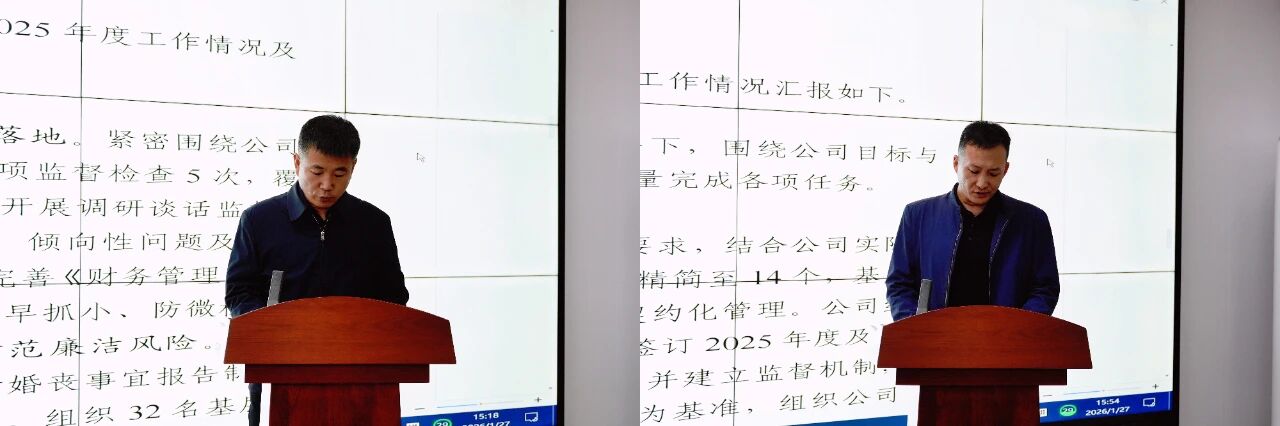 025 年度工作情况及
落地。紧密围绕公司
项监督检查 5 次，覆
开展调研谈话监
倾向性问题及
完善《财务管理
早抓小、防微
范廉洁风险。
婚丧事宜报告制
组织 32 名基层
15:18
29
2026/1/27
工作情况汇报如下。
下，围绕公司目标与
量完成各项任务。
要求，结合公司实际
精简至 14 个，基
契约化管理。公司
签订 2025 年度及
并建立监督机制
为基准，组织公司
15:54
29
2026/1/27